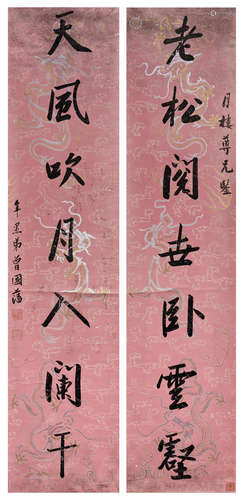 月樓尊兄鑒
老松閱世臥雲壑
天風吹月入闌干
年愚弟曾國藩